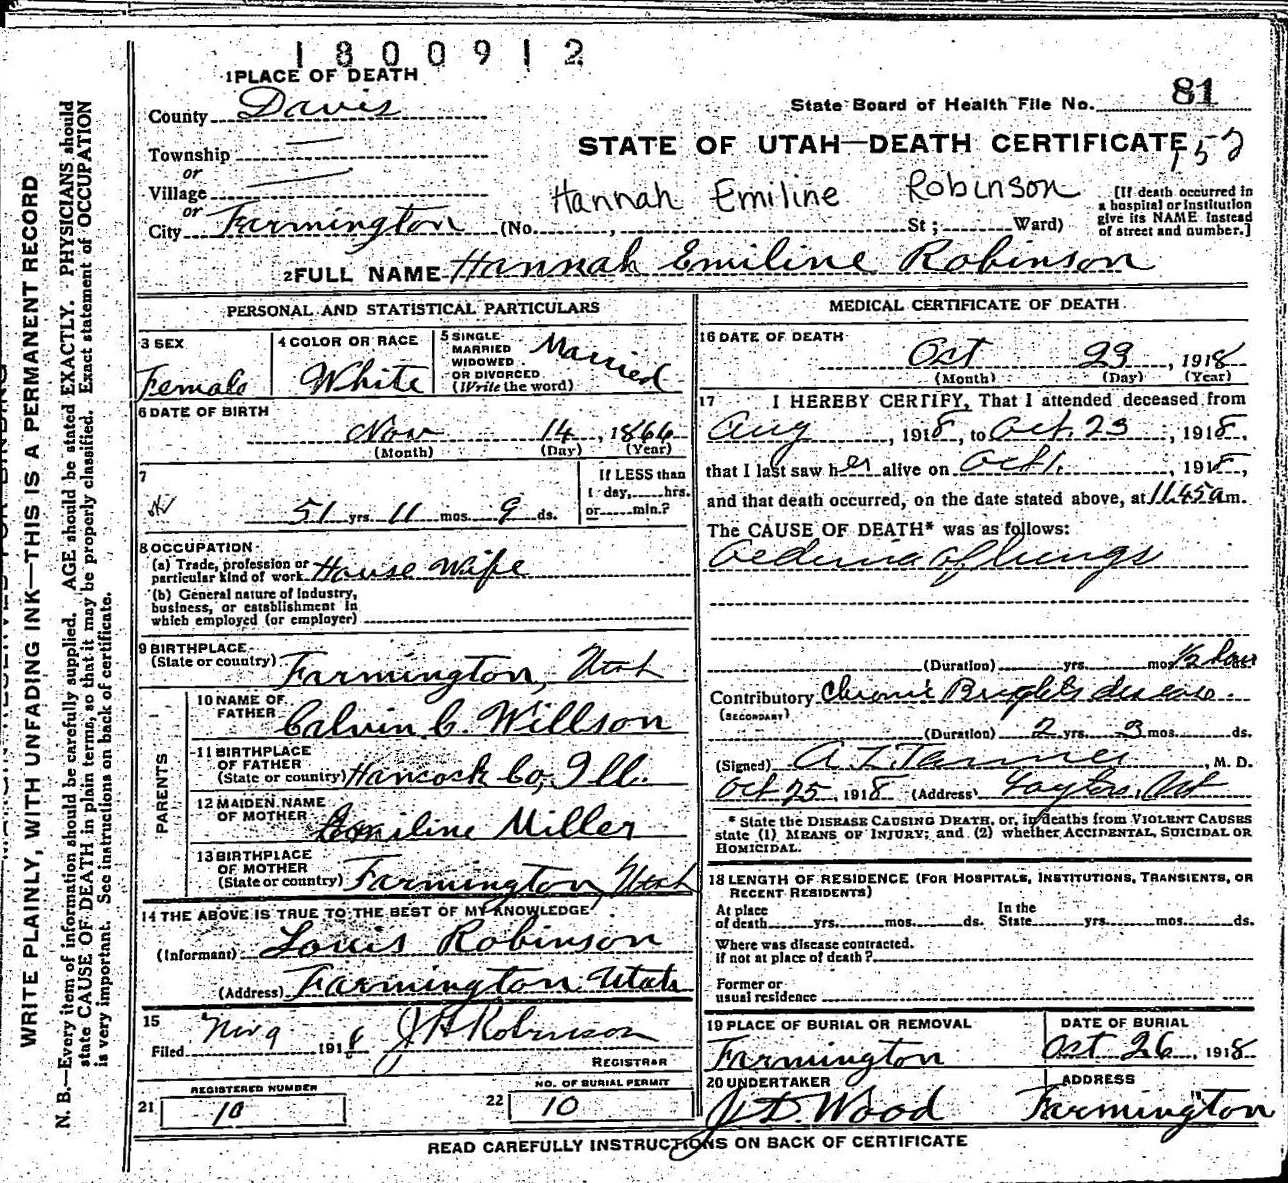 1800912
1 PLACE OF DEATH
County Davis
State Board of Health File No. 81
Township
or
STATE OF UTAH—DEATH CERTIFICATE 152
Village
or
Hannah Emiline Robinson
City Farmington (No. , St; Ward)
[If death occurred in
a hospital or institution
give its NAME instead
of street and number.]
2 FULL NAME Hannah Emiline Robinson
PERSONAL AND STATISTICAL PARTICULARS
3 SEX
Female
4 COLOR OR RACE
White
5 SINGLE
MARRIED
WIDOWED
OR DIVORCED
(Write the word)
Married
6 DATE OF BIRTH
Nov 14, 1866
(Month) (Day) (Year)
7
51 yrs. 11 mos. 9 ds.
If LESS than
1 day, hrs.
or min.?
8 OCCUPATION
(a) Trade, profession or
particular kind of work House Wife
(b) General nature of industry,
business, or establishment in
which employed (or employer)
9 BIRTHPLACE
(State or country) Farmington, Utah
PARENTS
10 NAME OF
FATHER Calvin C. Willson
11 BIRTHPLACE
OF FATHER
(State or country) Hancock Co, Ill.
12 MAIDEN NAME
OF MOTHER Emiline Miller
13 BIRTHPLACE
OF MOTHER
(State or country) Farmington, Utah
14 THE ABOVE IS TRUE TO THE BEST OF MY KNOWLEDGE
(Informant) Louis Robinson
(Address) Farmington Utah
15
Filed Nov 9 1918 J H Robinson
REGISTRAR
REGISTERED NUMBER
21 10
NO. OF BURIAL PERMIT
22 10
MEDICAL CERTIFICATE OF DEATH
16 DATE OF DEATH
Oct 23, 1918
(Month) (Day) (Year)
17 I HEREBY CERTIFY, That I attended deceased from
Aug, 1918, to Oct. 23, 1918,
that I last saw her alive on Oct 1., 1918,
and that death occurred, on the date stated above, at 11.45 a m.
The CAUSE OF DEATH* was as follows:
Oedema of lungs
(Duration) yrs. mos. 1/2 hour
Contributory Chronic Bright's disease.
(SECONDARY)
(Duration) 2 yrs. 3 mos. ds.
(Signed) A. Z. Tanner, M. D.
Oct 25, 1918 (Address) Layton, Ut
* State the DISEASE CAUSING DEATH, or, in deaths from VIOLENT CAUSES
state (1) MEANS OF INJURY; and (2) whether ACCIDENTAL, SUICIDAL OR
HOMICIDAL.
18 LENGTH OF RESIDENCE (FOR HOSPITALS, INSTITUTIONS, TRANSIENTS, OR
RECENT RESIDENTS)
At place
of death yrs. mos. ds.
In the
State yrs. mos. ds.
Where was disease contracted.
if not at place of death?
Former or
usual residence
19 PLACE OF BURIAL OR REMOVAL
Farmington
DATE OF BURIAL
Oct 26, 1918
20 UNDERTAKER
J. D. Wood
ADDRESS
Farmington
READ CAREFULLY INSTRUCTIONS ON BACK OF CERTIFICATE
WRITE PLAINLY, WITH UNFADING INK—THIS IS A PERMANENT RECORD
N. B.—Every item of information should be carefully supplied. AGE should be stated EXACTLY. PHYSICIANS should
state CAUSE OF DEATH in plain terms, so that it may be properly classified. Exact statement of OCCUPATION
is very important. See instructions on back of certificate.